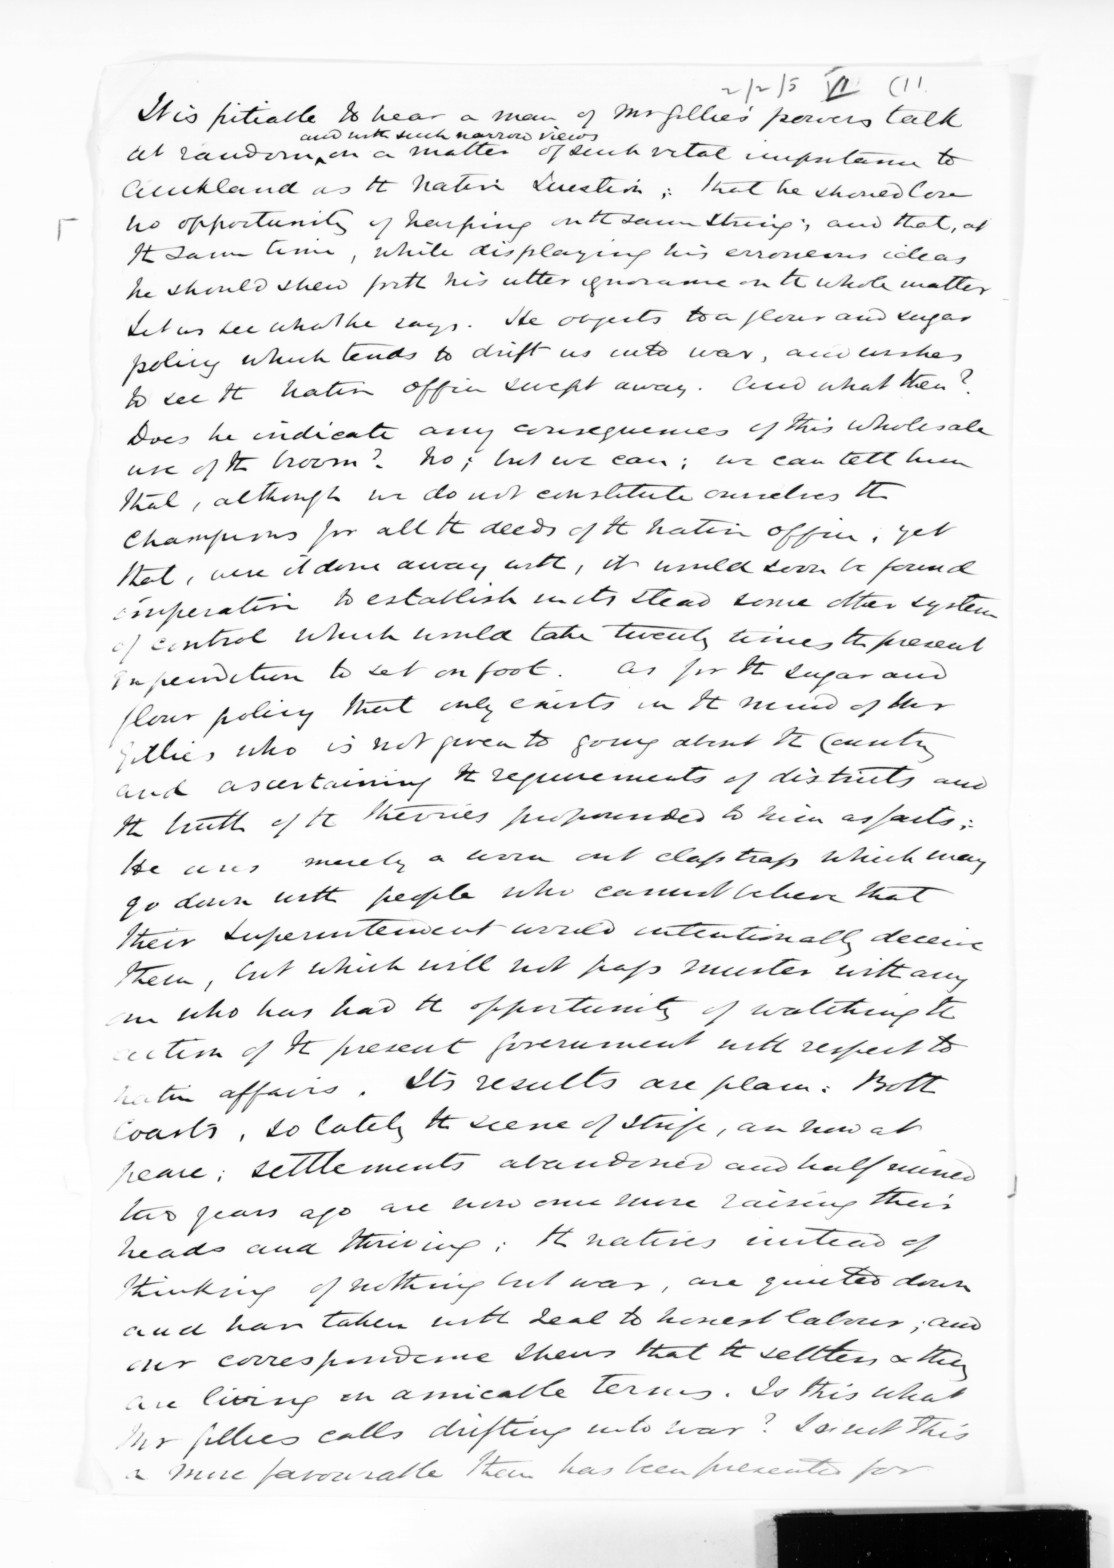 2/2/5 VI (11
It is pitiable to hear a man of Mr Gillies' powers talk
and with such narrow views
at random, on a matter of such vital importance to
Auckland as the Native Question; that he should lose
no opportunity of harping on the same string; and that, at
the same time, while displaying his erroneous ideas
he should shew forth his utter ignorance on the whole matter
Let us see what he says. He objects to a flour and sugar
policy which tends to drift us into war, and wishes
to see the Native Office swept away. And what then?
Does he indicate any consequences of this wholesale
use of the broom? No; but we can; we can tell him
that, although we do not constitute ourselves the
champions for all the deeds of the Native Office, yet
that, were it done away with, it would soon be found
imperative to establish in its stead some other system
of control which would take twenty times the present
expenditure to set on foot. As for the sugar and
flour policy that only exists in the mind of Mr
Gillies who is not given to going about the Country
and ascertaining the requirements of districts and
the truth of the theories propounded to him as facts;
He uses merely a worn out claptrap which may
go down with people who cannot believe that
their Superintendent would intentionally deceive
them, but which will not pass muster with any
one who has had the opportunity of watching the
action of the present Government with respect to
native affairs. Its results are plain: Both
Coasts, so lately the scene of strife, are now at
peace; settlements abandoned and half ruined
two years ago are now once more raising their
heads and thriving; the natives instead of
thinking of nothing but war, are quieted down
and have taken with zeal to honest labour; and
our correspondence shews that the settlers & they
are living on amicable terms. Is this what
Mr Gillies calls drifting into war? Is not this
a more favourable than has been presented for